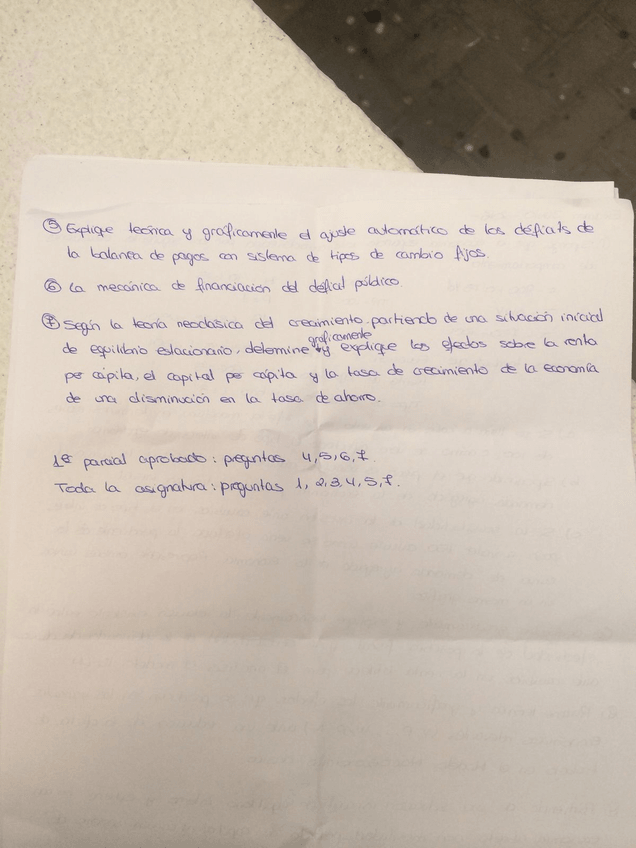 ⑤ Explique teórica y gráficamente el ajuste automático de los déficits de
la balanza de pagos con sistema de tipos de cambio fijos.
⑥ La mecánica de financiación del déficit público.
⑦ Según la teoría neoclásica del crecimiento, partiendo de una situación inicial
de equilibrio estacionario, determine gráficamente y explique los efectos sobre la renta
per cápita, el capital per cápita y la tasa de crecimiento de la economía
de una disminución en la tasa de ahorro.
1er parcial aprobado: preguntas 4,5,6,7.
Toda la asignatura: preguntas 1,2,3,4,5,7.